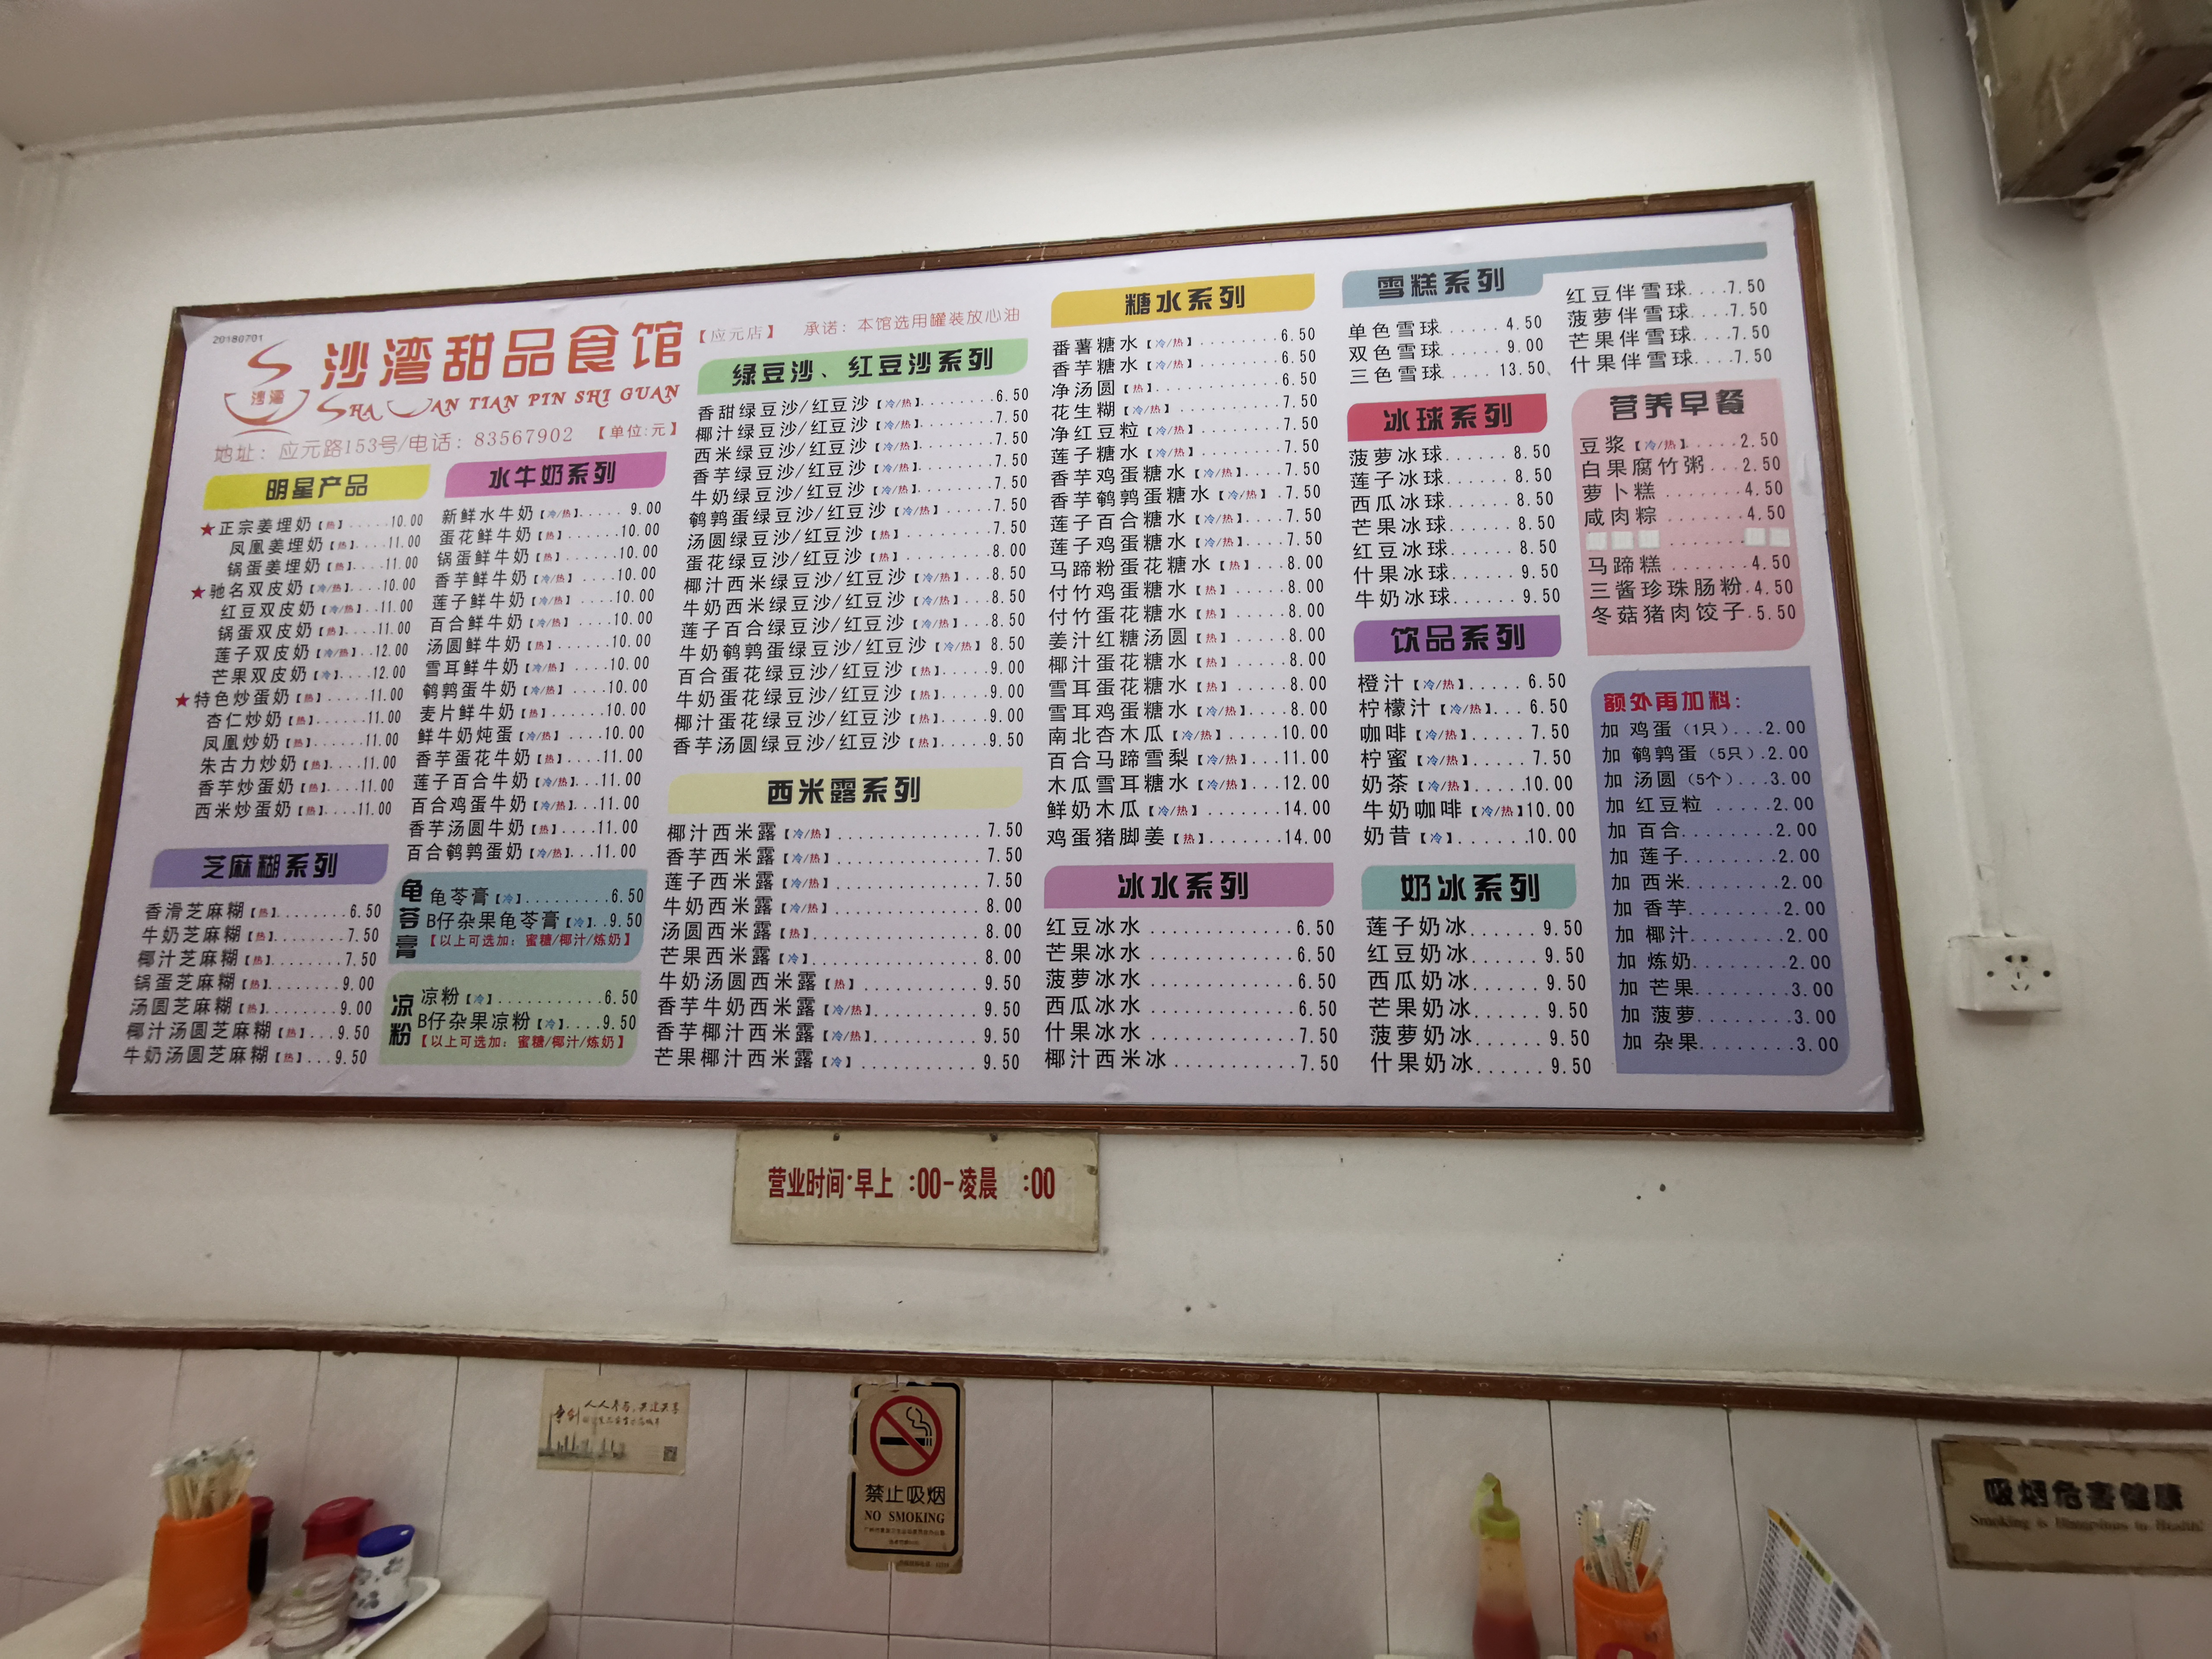 20180701
沙湾
沙湾甜品食馆
SHA WAN TIAN PIN SHI GUAN
【应元店】 承诺：本馆选用罐装放心油
地址：应元路153号/电话：83567902 【单位:元】
明星产品
★正宗姜埋奶【热】.....10.00
凤凰姜埋奶【热】....11.00
锅蛋姜埋奶【热】....11.00
★驰名双皮奶【冷/热】....10.00
红豆双皮奶【冷/热】...11.00
锅蛋双皮奶【热】....11.00
莲子双皮奶【冷/热】...12.00
芒果双皮奶【冷】....12.00
★特色炒蛋奶【热】......11.00
杏仁炒奶【热】.......11.00
凤凰炒奶【热】......11.00
朱古力炒奶【热】....11.00
香芋炒蛋奶【热】....11.00
西米炒蛋奶【热】....11.00
芝麻糊系列
香滑芝麻糊【热】........6.50
牛奶芝麻糊【热】........7.50
椰汁芝麻糊【热】........7.50
锅蛋芝麻糊【热】........9.00
汤圆芝麻糊【热】........9.00
椰汁汤圆芝麻糊【热】...9.50
牛奶汤圆芝麻糊【热】...9.50
水牛奶系列
新鲜水牛奶【冷/热】..... 9.00
蛋花鲜牛奶【热】.......10.00
锅蛋鲜牛奶【热】.......10.00
香芋鲜牛奶【冷/热】....10.00
莲子鲜牛奶【冷/热】....10.00
百合鲜牛奶【冷/热】....10.00
汤圆鲜牛奶【热】.......10.00
雪耳鲜牛奶【冷/热】....10.00
鹌鹑蛋牛奶【冷/热】....10.00
麦片鲜牛奶【热】.......10.00
鲜牛奶炖蛋【冷/热】....10.00
香芋蛋花牛奶【热】.....11.00
莲子百合牛奶【冷/热】..11.00
百合鸡蛋牛奶【冷/热】..11.00
香芋汤圆牛奶【热】.....11.00
百合鹌鹑蛋奶【冷/热】...11.00
龟苓膏
龟苓膏【冷】.........6.50
B仔杂果龟苓膏【冷】..9.50
【以上可选加：蜜糖/椰汁/炼奶】
凉粉
凉粉【冷】...........6.50
B仔杂果凉粉【冷】....9.50
【以上可选加：蜜糖/椰汁/炼奶】
绿豆沙、红豆沙系列
香甜绿豆沙/红豆沙【冷/热】........6.50
椰汁绿豆沙/红豆沙【冷/热】........7.50
西米绿豆沙/红豆沙【冷/热】........7.50
香芋绿豆沙/红豆沙【冷/热】........7.50
牛奶绿豆沙/红豆沙【冷/热】........7.50
鹌鹑蛋绿豆沙/红豆沙【冷/热】......7.50
汤圆绿豆沙/红豆沙【热】..........7.50
蛋花绿豆沙/红豆沙【热】..........8.00
椰汁西米绿豆沙/红豆沙【冷/热】...8.50
牛奶西米绿豆沙/红豆沙【冷/热】...8.50
莲子百合绿豆沙/红豆沙【冷/热】...8.50
牛奶鹌鹑蛋绿豆沙/红豆沙【冷/热】8.50
百合蛋花绿豆沙/红豆沙【热】.....9.00
牛奶蛋花绿豆沙/红豆沙【热】.....9.00
椰汁蛋花绿豆沙/红豆沙【热】.....9.00
香芋汤圆绿豆沙/红豆沙【热】.....9.50
西米露系列
椰汁西米露【冷/热】..............7.50
香芋西米露【冷/热】..............7.50
莲子西米露【冷/热】..............7.50
牛奶西米露【冷/热】..............8.00
汤圆西米露【热】................8.00
芒果西米露【冷】................8.00
牛奶汤圆西米露【热】............9.50
香芋牛奶西米露【冷/热】..........9.50
香芋椰汁西米露【冷/热】..........9.50
芒果椰汁西米露【冷】............9.50
糖水系列
番薯糖水【冷/热】.........6.50
香芋糖水【冷/热】.........6.50
净汤圆【热】.............6.50
花生糊【冷/热】..........7.50
净红豆粒【冷/热】........7.50
莲子糖水【冷/热】........7.50
香芋鸡蛋糖水【冷/热】....7.50
香芋鹌鹑蛋糖水【冷/热】.7.50
莲子百合糖水【冷/热】....7.50
莲子鸡蛋糖水【冷/热】....7.50
马蹄粉蛋花糖水【热】....8.00
付竹鸡蛋糖水【冷/热】....8.00
付竹蛋花糖水【冷/热】....8.00
姜汁红糖汤圆【热】......8.00
椰汁蛋花糖水【热】......8.00
雪耳蛋花糖水【热】......8.00
雪耳鸡蛋糖水【冷/热】....8.00
南北杏木瓜【冷/热】.....10.00
百合马蹄雪梨【冷/热】...11.00
木瓜雪耳糖水【冷/热】...12.00
鲜奶木瓜【冷/热】.......14.00
鸡蛋猪脚姜【热】........14.00
冰水系列
红豆冰水............6.50
芒果冰水............6.50
菠萝冰水............6.50
西瓜冰水............6.50
什果冰水............7.50
椰汁西米冰...........7.50
雪糕系列
单色雪球......4.50
双色雪球......9.00
三色雪球.....13.50
红豆伴雪球....7.50
菠萝伴雪球....7.50
芒果伴雪球....7.50
什果伴雪球....7.50
冰球系列
菠萝冰球......8.50
莲子冰球......8.50
西瓜冰球......8.50
芒果冰球......8.50
红豆冰球......8.50
什果冰球......9.50
牛奶冰球......9.50
饮品系列
橙汁【冷/热】.....6.50
柠檬汁【冷/热】...6.50
咖啡【冷/热】.....7.50
柠蜜【冷/热】.....7.50
奶茶【冷/热】.....10.00
牛奶咖啡【冷/热】10.00
奶昔【冷】.......10.00
奶冰系列
莲子奶冰......9.50
红豆奶冰......9.50
西瓜奶冰......9.50
芒果奶冰......9.50
菠萝奶冰......9.50
什果奶冰......9.50
营养早餐
豆浆【冷/热】.....2.50
白果腐竹粥...2.50
萝卜糕.......4.50
咸肉粽.......4.50
马蹄糕.......4.50
三酱珍珠肠粉.4.50
冬菇猪肉饺子.5.50
额外再加料：
加 鸡蛋（1只）...2.00
加 鹌鹑蛋（5只）.2.00
加 汤圆（5个）...3.00
加 红豆粒 .....2.00
加 百合........2.00
加 莲子........2.00
加 西米........2.00
加 香芋........2.00
加 椰汁........2.00
加 炼奶........2.00
加 芒果........3.00
加 菠萝........3.00
加 杂果........3.00
营业时间·早上 :00-凌晨 :00
人人参与,共建共享
禁止吸烟
NO SMOKING
吸烟危害健康
Smoking is Hazardous to Health